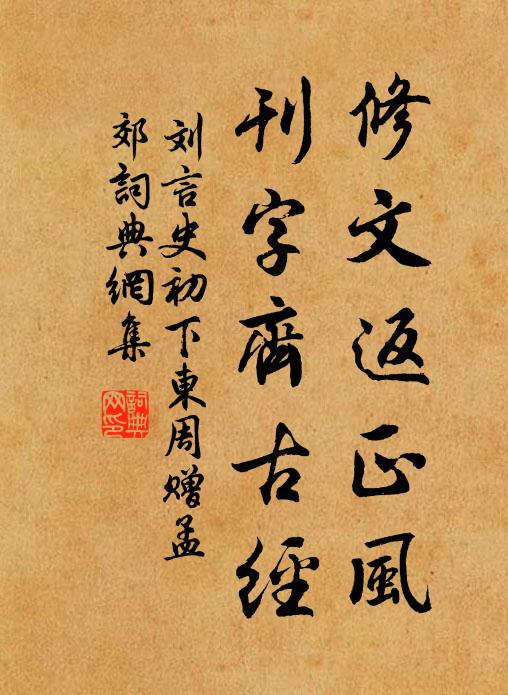 修文返正風
刊字齊古經
刘言史初下東周赠孟
郊詞典網集
詞典网印